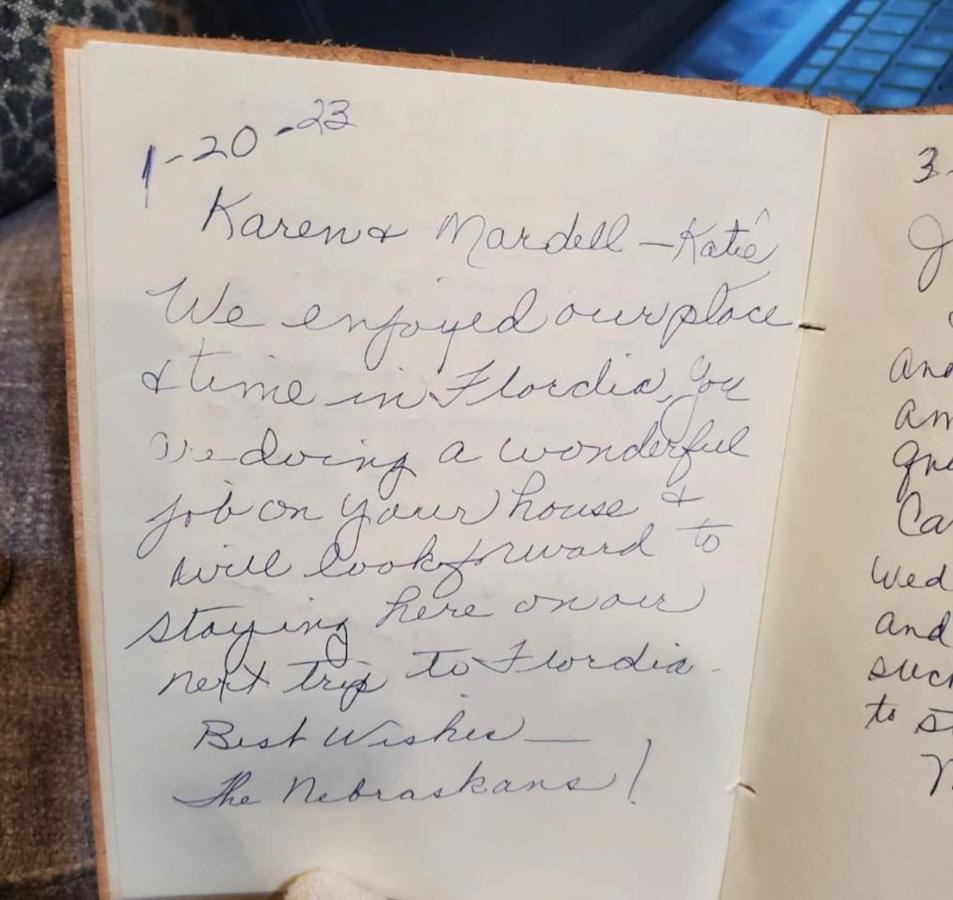 1-20-23
Karen & Mardell - Katie
We enjoyed our place
& time in Flordia, you
doing a wonderful
job on your house &
will look forward to
staying here on our
next trip to Flordia.
Best Wishes —
The Nebraskans!
3-
and
am
Ca
Wed
and
such
to st